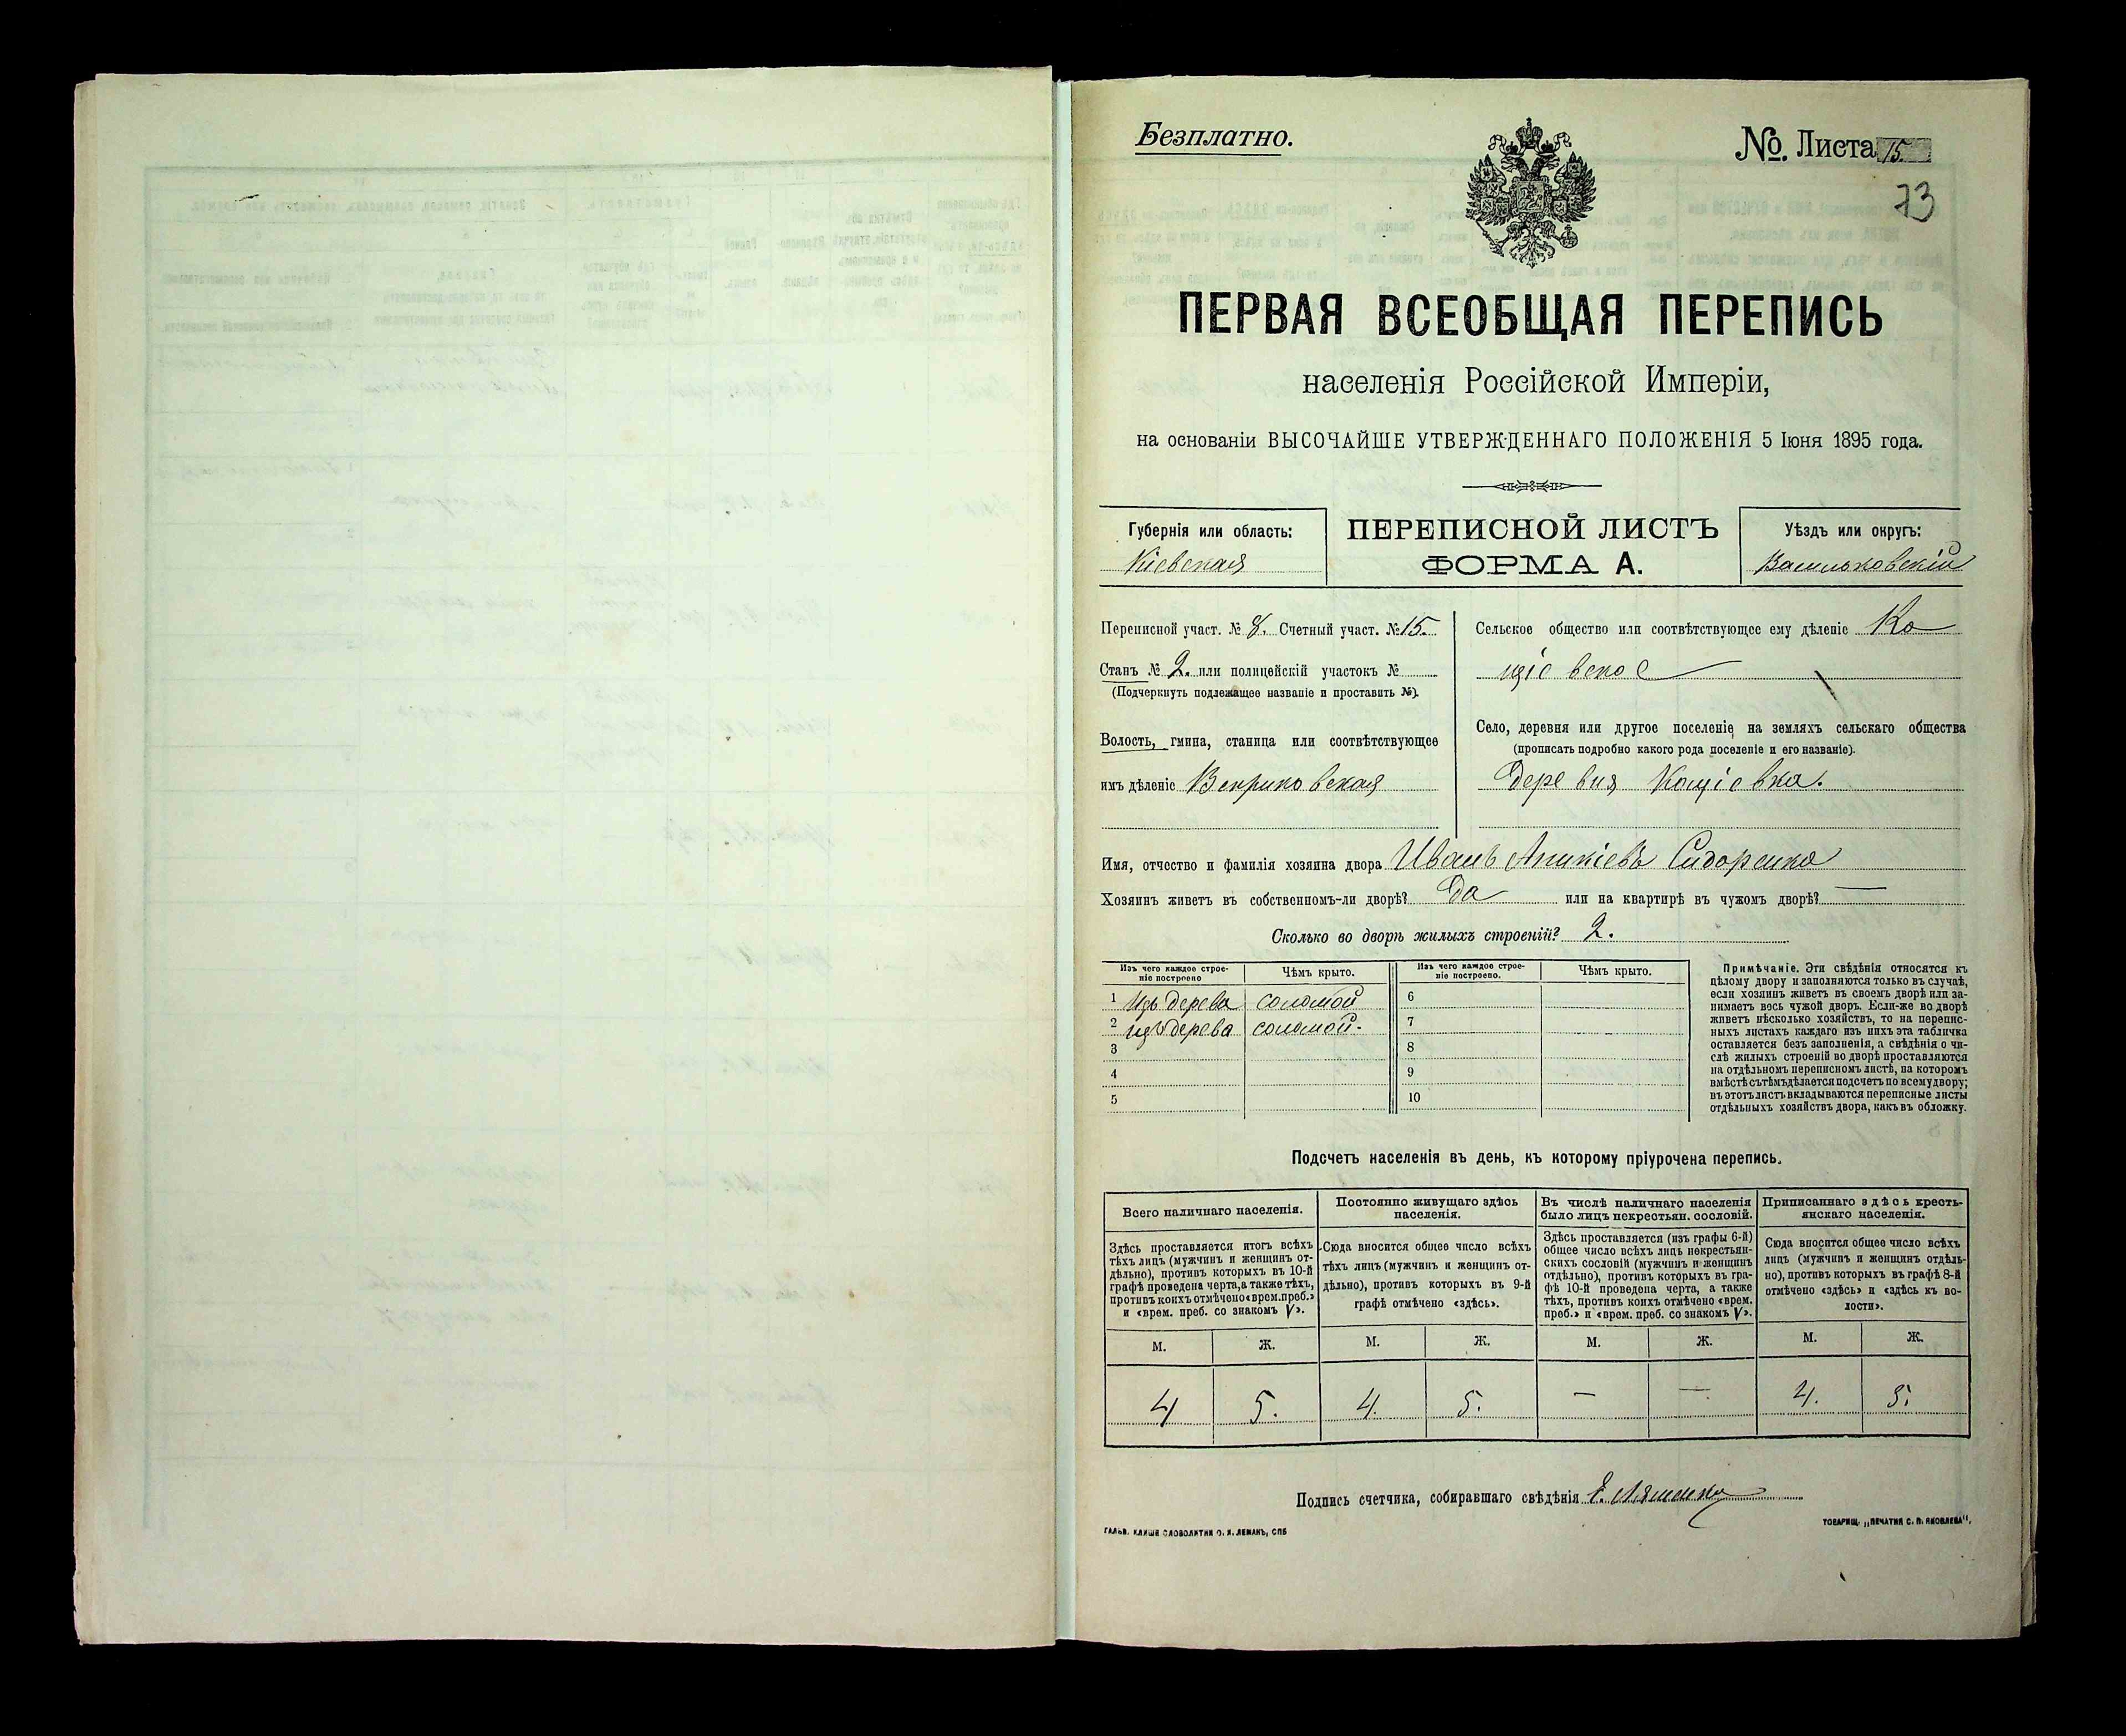 Безплатно.
№. Листа 15.
73
ПЕРВАЯ ВСЕОБЩАЯ ПЕРЕПИСЬ
населенія Россійской Имперіи,
на основаніи ВЫСОЧАЙШЕ УТВЕРЖДЕННАГО ПОЛОЖЕНІЯ 5 Іюня 1895 года.
Губернія или область:
Кіевская
ПЕРЕПИСНОЙ ЛИСТЪ
ФОРМА А.
Уѣздъ или округъ:
Васильковскій
Переписной участ. № 8. Счетный участ. № 15.
Станъ № 2. или полицейскій участокъ №
(Подчеркнуть подлежащее названіе и проставить №).
Волость, гмина, станица или соотвѣтствующее
имъ дѣленіе Веприковская
Сельское общество или соотвѣтствующее ему дѣленіе Ко
щіевское
Село, деревня или другое поселеніе на земляхъ сельскаго общества
(прописать подробно какого рода поселеніе и его названіе).
Деревня Кощіевка.
Имя, отчество и фамилія хозяина двора Иванъ Аникіевъ Сидоренко
Хозяинъ живетъ въ собственномъ-ли дворѣ? Да или на квартирѣ въ чужомъ дворѣ? —
Сколько во дворѣ жилыхъ строеній? 2.
Изъ чего каждое строе-
ніе построено
Чѣмъ крыто.
Изъ чего каждое строе-
ніе построено.
Чѣмъ крыто.
1 Изъ дерева соломой 6
2 изъ дерева соломой. 7
3 8
4 9
5 10
Примѣчаніе. Эти свѣдѣнія относятся къ
цѣлому двору и заполняются только въ случаѣ,
если хозяинъ живетъ въ своемъ дворѣ или за-
нимаетъ весь чужой дворъ. Если-же во дворѣ
живетъ нѣсколько хозяйствъ, то на перепис-
ныхъ листахъ каждаго изъ нихъ эта табличка
оставляется безъ заполненія, а свѣдѣнія о чи-
слѣ жилыхъ строеній во дворѣ проставляются
на отдѣльномъ переписномъ листѣ, на которомъ
вмѣстѣ съ тѣмъ дѣлается подсчетъ по всему двору;
въ этотъ листъ вкладываются переписные листы
отдѣльныхъ хозяйствъ двора, какъ въ обложку.
Подсчетъ населенія въ день, къ которому пріурочена перепись.
Всего наличнаго населенія.
Здѣсь проставляется итогъ всѣхъ
тѣхъ лицъ (мужчинъ и женщинъ от-
дѣльно), противъ которыхъ въ 10-й
графѣ проведена черта, а также тѣхъ,
противъ коихъ отмѣчено «врем. преб.»
и «врем. преб. со знакомъ V».
Постоянно живущаго здѣсь
населенія.
Сюда вносится общее число всѣхъ
тѣхъ лицъ (мужчинъ и женщинъ от-
дѣльно), противъ которыхъ въ 9-й
графѣ отмѣчено «здѣсь».
Въ числѣ наличнаго населенія
было лицъ некрестьян. сословій.
Здѣсь проставляется (изъ графы 6-й)
общее число всѣхъ лицъ некрестьян-
скихъ сословій (мужчинъ и женщинъ
отдѣльно), противъ которыхъ въ гра-
фѣ 10-й проведена черта, а также
тѣхъ, противъ коихъ отмѣчено «врем.
преб.» и «врем. преб. со знакомъ V».
Приписаннаго здѣсь кресть-
янскаго населенія.
Сюда вносится общее число всѣхъ
лицъ (мужчинъ и женщинъ отдѣль-
но), противъ которыхъ въ графѣ 8-й
отмѣчено «здѣсь» и «здѣсь къ во-
лости».
М. Ж. М. Ж. М. Ж. М. Ж.
4 5. 4. 5. — — 4. 5.
Подпись счетчика, собиравшаго свѣдѣнія
ГАЛЬВ. КЛИШЕ СЛОВОЛИТНИ О. И. ЛЕМАНЪ, СПБ
ТОВАРИЩ. „ПЕЧАТНЯ С. П. ЯКОВЛЕВА“.